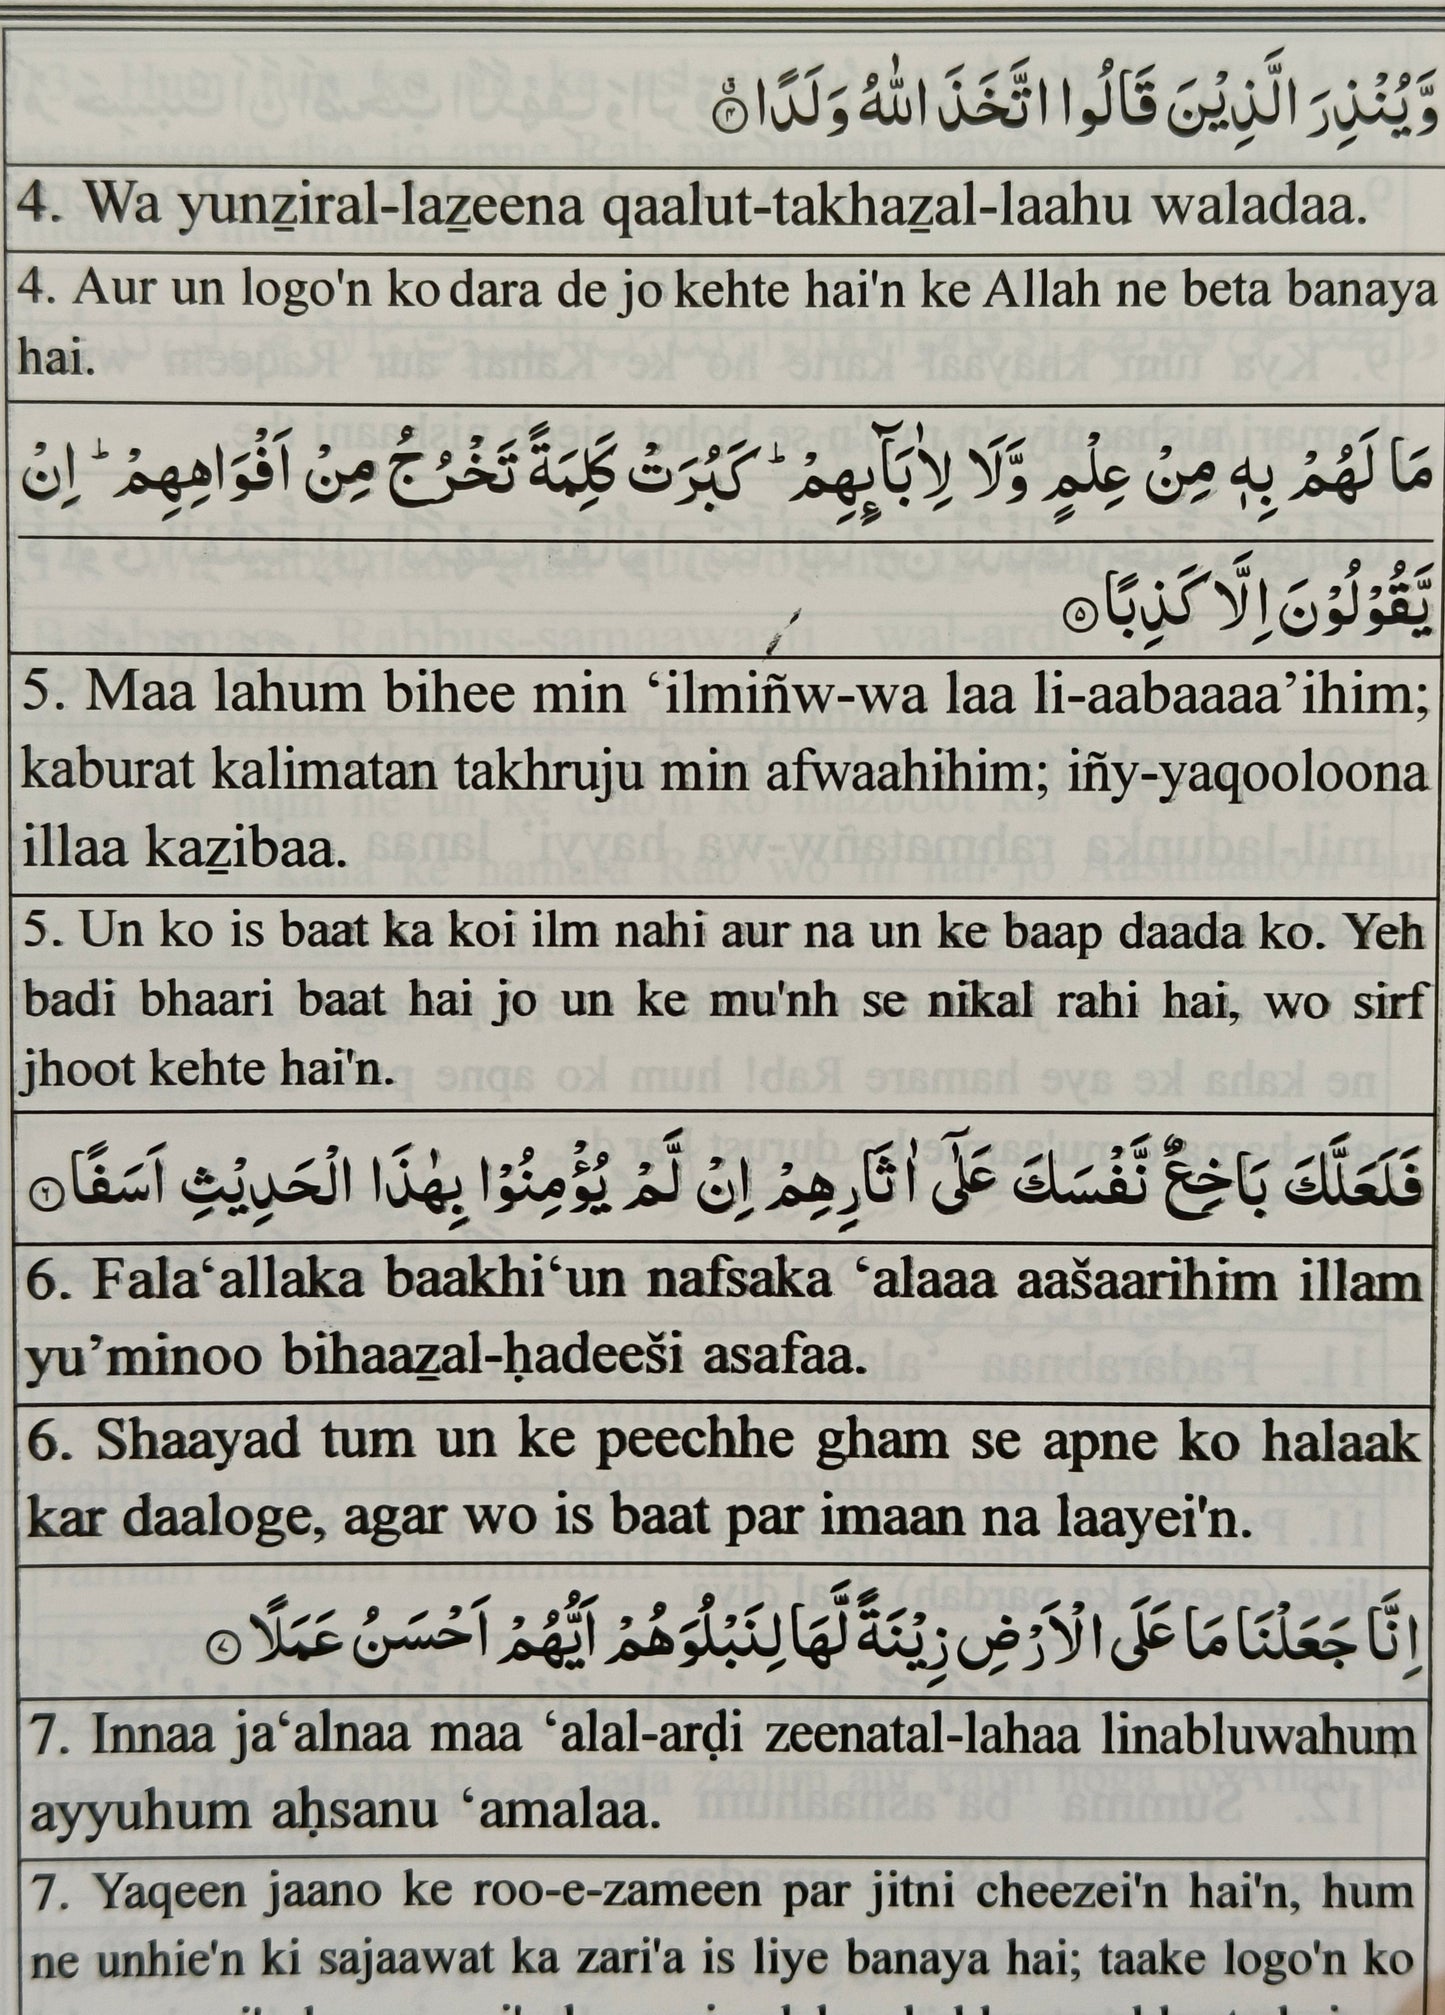 وَّيُنْذِرَ الَّذِيْنَ قَالُوا اتَّخَذَ اللّٰهُ وَلَدًا ۝۴
4. Wa yunẕiral-laẕeena qaalut-takhaẕal-laahu waladaa.
4. Aur un logo'n ko dara de jo kehte hai'n ke Allah ne beta banaya
hai.
مَا لَهُمْ بِهٖ مِنْ عِلْمٍ وَّلَا لِاٰبَآىِٕهِمْ ؕ كَبُرَتْ كَلِمَةً تَخْرُجُ مِنْ اَفْوَاهِهِمْ ؕ اِنْ
يَّقُوْلُوْنَ اِلَّا كَذِبًا ۝۵
5. Maa lahum bihee min ‘ilmiñw-wa laa li-aabaaaa’ihim;
kaburat kalimatan takhruju min afwaahihim; iñy-yaqooloona
illaa kaẕibaa.
5. Un ko is baat ka koi ilm nahi aur na un ke baap daada ko. Yeh
badi bhaari baat hai jo un ke mu'nh se nikal rahi hai, wo sirf
jhoot kehte hai'n.
فَلَعَلَّكَ بَاخِعٌ نَّفْسَكَ عَلٰٓى اٰثَارِهِمْ اِنْ لَّمْ يُؤْمِنُوْا بِهٰذَا الْحَدِيْثِ اَسَفًا ۝۶
6. Fala‘allaka baakhi‘un nafsaka ‘alaaa aašaarihim illam
yu’minoo bihaaẕal-ḥadeeši asafaa.
6. Shaayad tum un ke peechhe gham se apne ko halaak
kar daaloge, agar wo is baat par imaan na laayei'n.
اِنَّا جَعَلْنَا مَا عَلَى الْاَرْضِ زِيْنَةً لَّهَا لِنَبْلُوَهُمْ اَيُّهُمْ اَحْسَنُ عَمَلًا ۝۷
7. Innaa ja‘alnaa maa ‘alal-arḍi zeenatal-lahaa linabluwahum
ayyuhum aḥsanu ‘amalaa.
7. Yaqeen jaano ke roo-e-zameen par jitni cheezei'n hai'n, hum
ne unhie'n ki sajaawat ka zari'a is liye banaya hai; taake logo'n ko